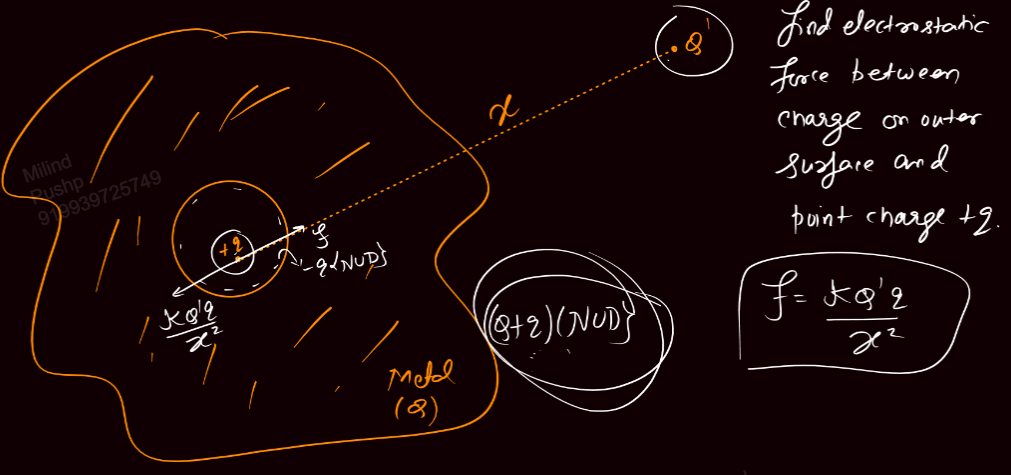 Q'
x
find electrostatic
force between
charge on outer
surface and
point charge +q.
Milind
Pushp
919939725749
+q
f
-q{NUD}
KQ'q
x²
(Q+q)(NUD}
Metal
(Q)
f = KQ'q
x²